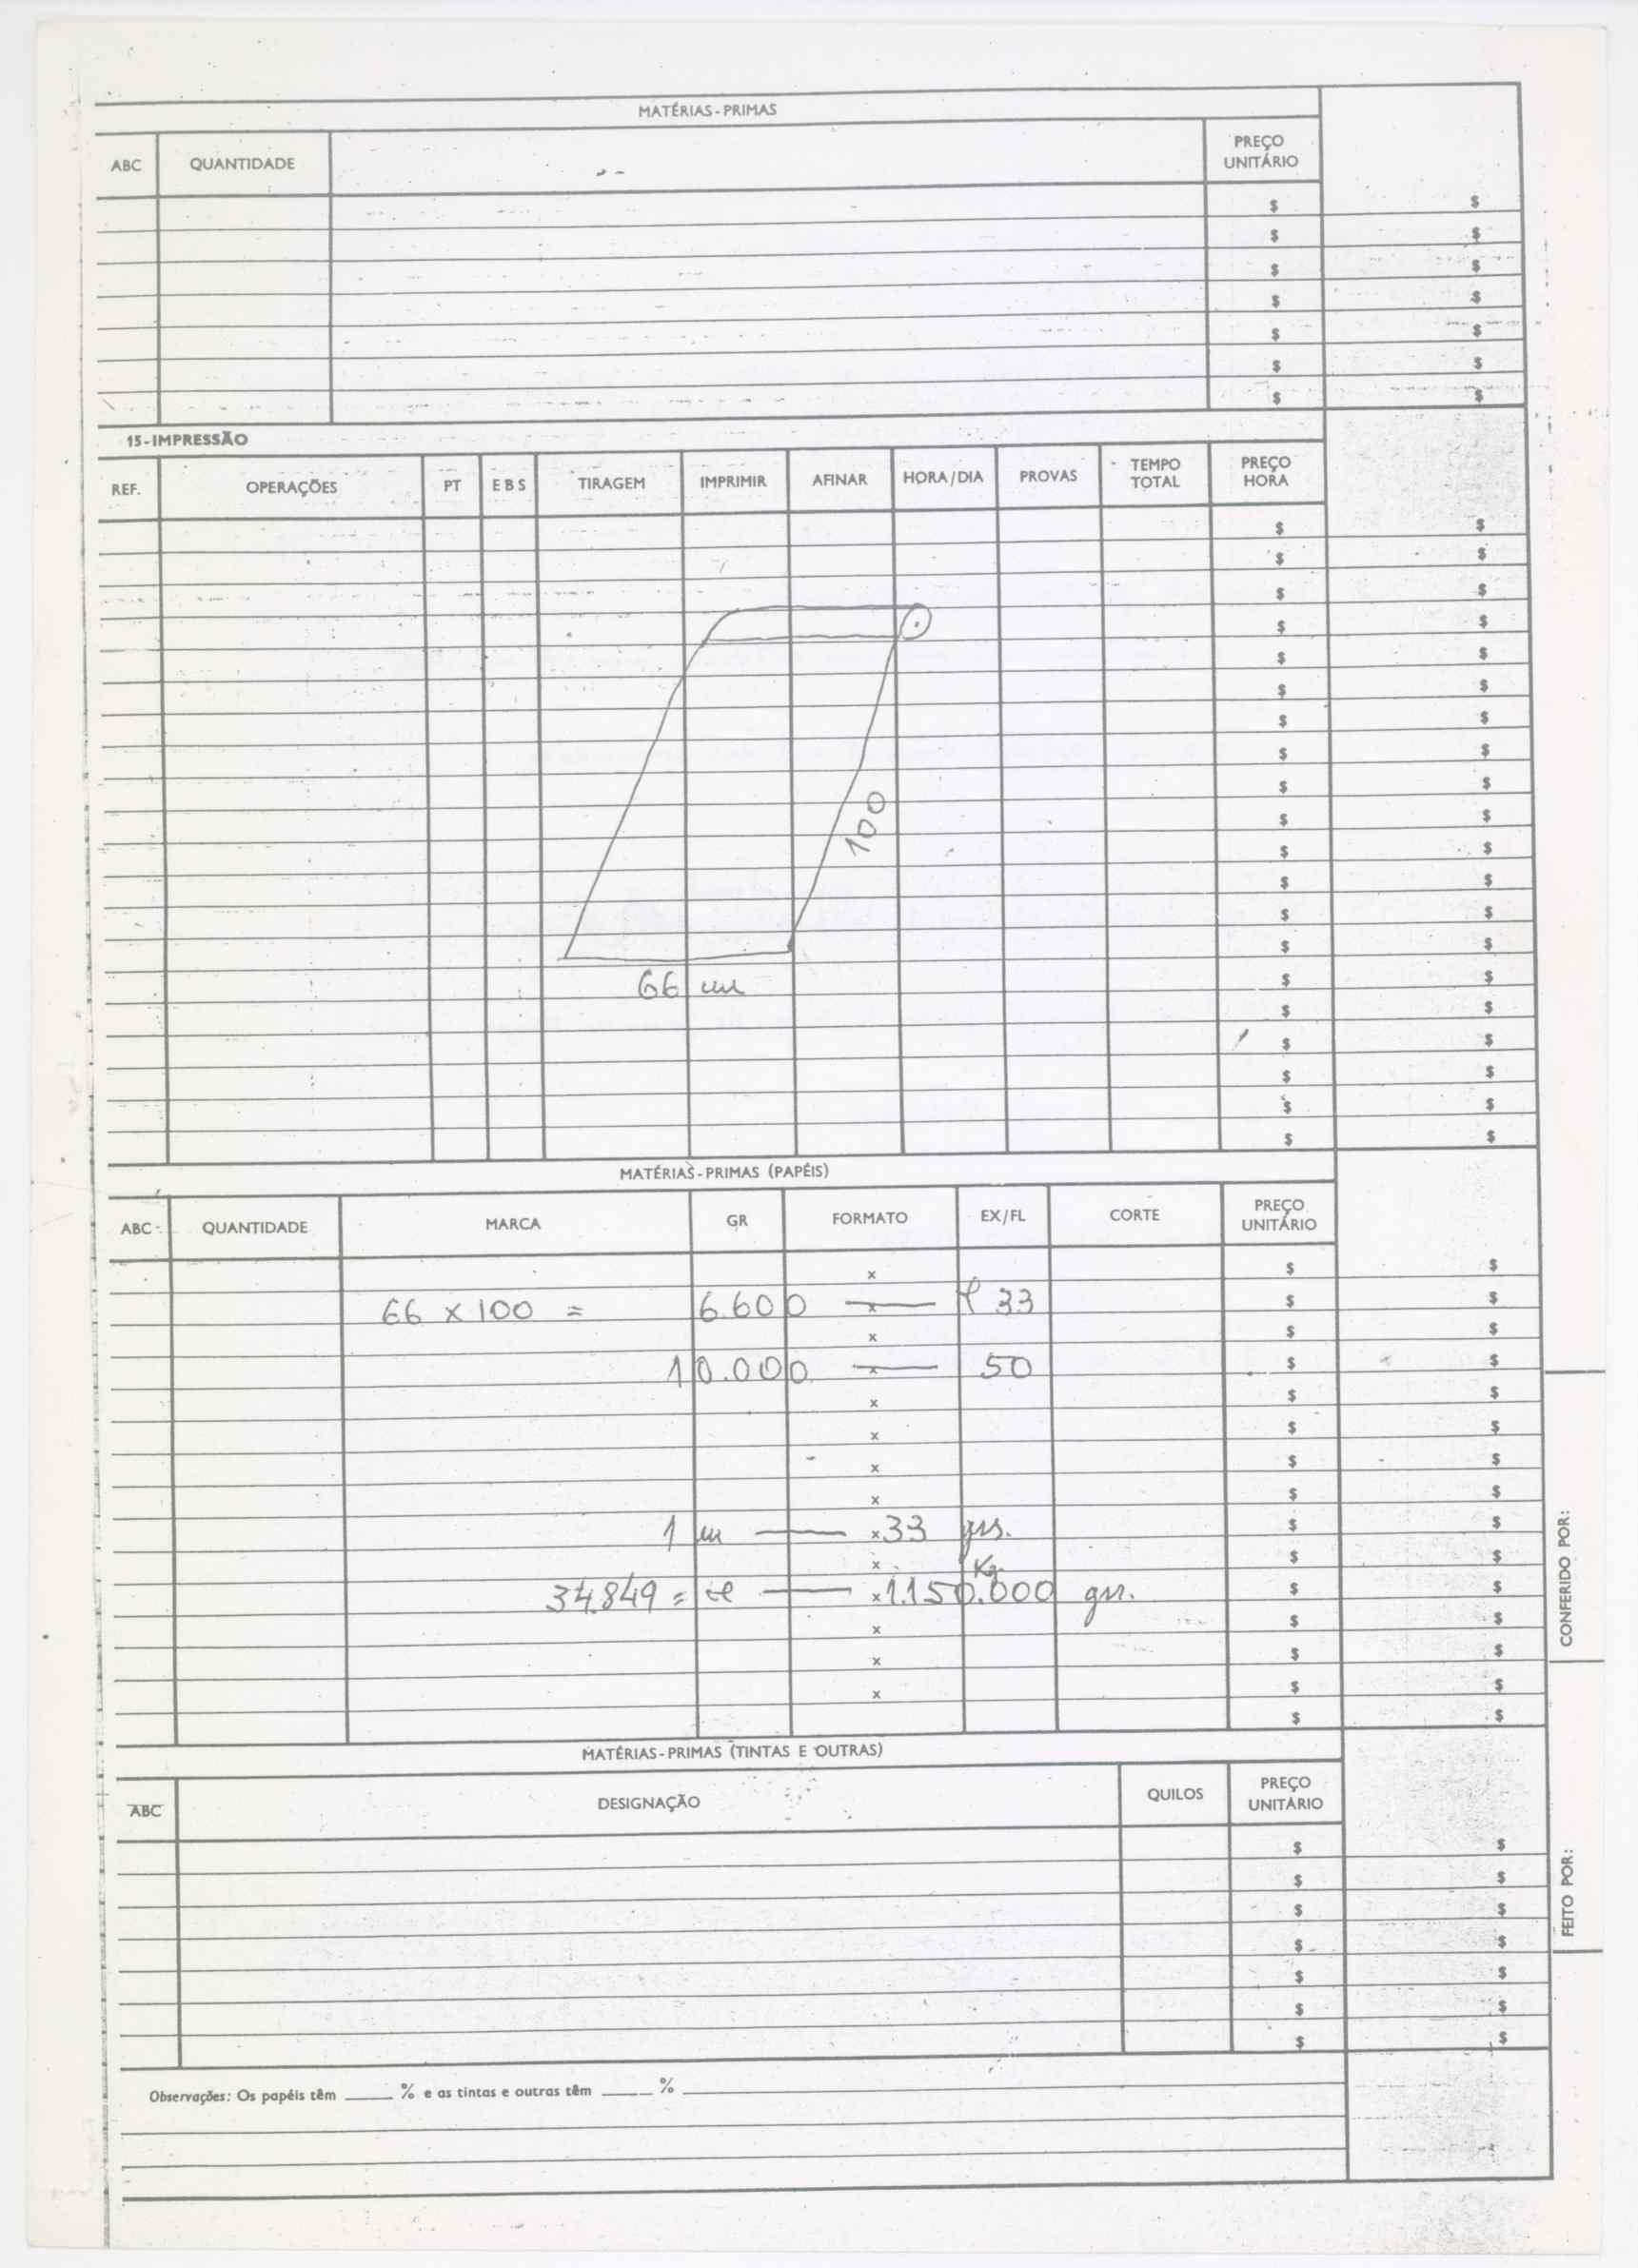 MATÉRIAS-PRIMAS
ABC QUANTIDADE PREÇO UNITÁRIO
$ $
$ $
$ $
$ $
$ $
$ $
$ $
15-IMPRESSÃO
REF. OPERAÇÕES PT EBS TIRAGEM IMPRIMIR AFINAR HORA/DIA PROVAS TEMPO TOTAL PREÇO HORA
$ $
$ $
$ $
$ $
$ $
$ $
$ $
$ $
$ $
$ $
100 $ $
$ $
$ $
$ $
66 cm $ $
$ $
$ $
$ $
$ $
$ $
MATÉRIAS-PRIMAS (PAPÉIS)
ABC QUANTIDADE MARCA GR FORMATO EX/FL CORTE PREÇO UNITÁRIO
x $ $
66 x 100 = 6.600 — x 33 $ $
x $ $
10.000 — x 50 $ $
x $ $
x $ $
x $ $
x $ $
1 m — x 33 grs. $ $
x Kg $ $
34.849 = — x 1.150.000 gr. $ $
x $ $
x $ $
x $ $
$ $
MATÉRIAS-PRIMAS (TINTAS E OUTRAS)
ABC DESIGNAÇÃO QUILOS PREÇO UNITÁRIO
$ $
$ $
$ $
$ $
$ $
$ $
$ $
Observações: Os papéis têm ____ % e as tintas e outras têm ____ %
CONFERIDO POR:
FEITO POR: